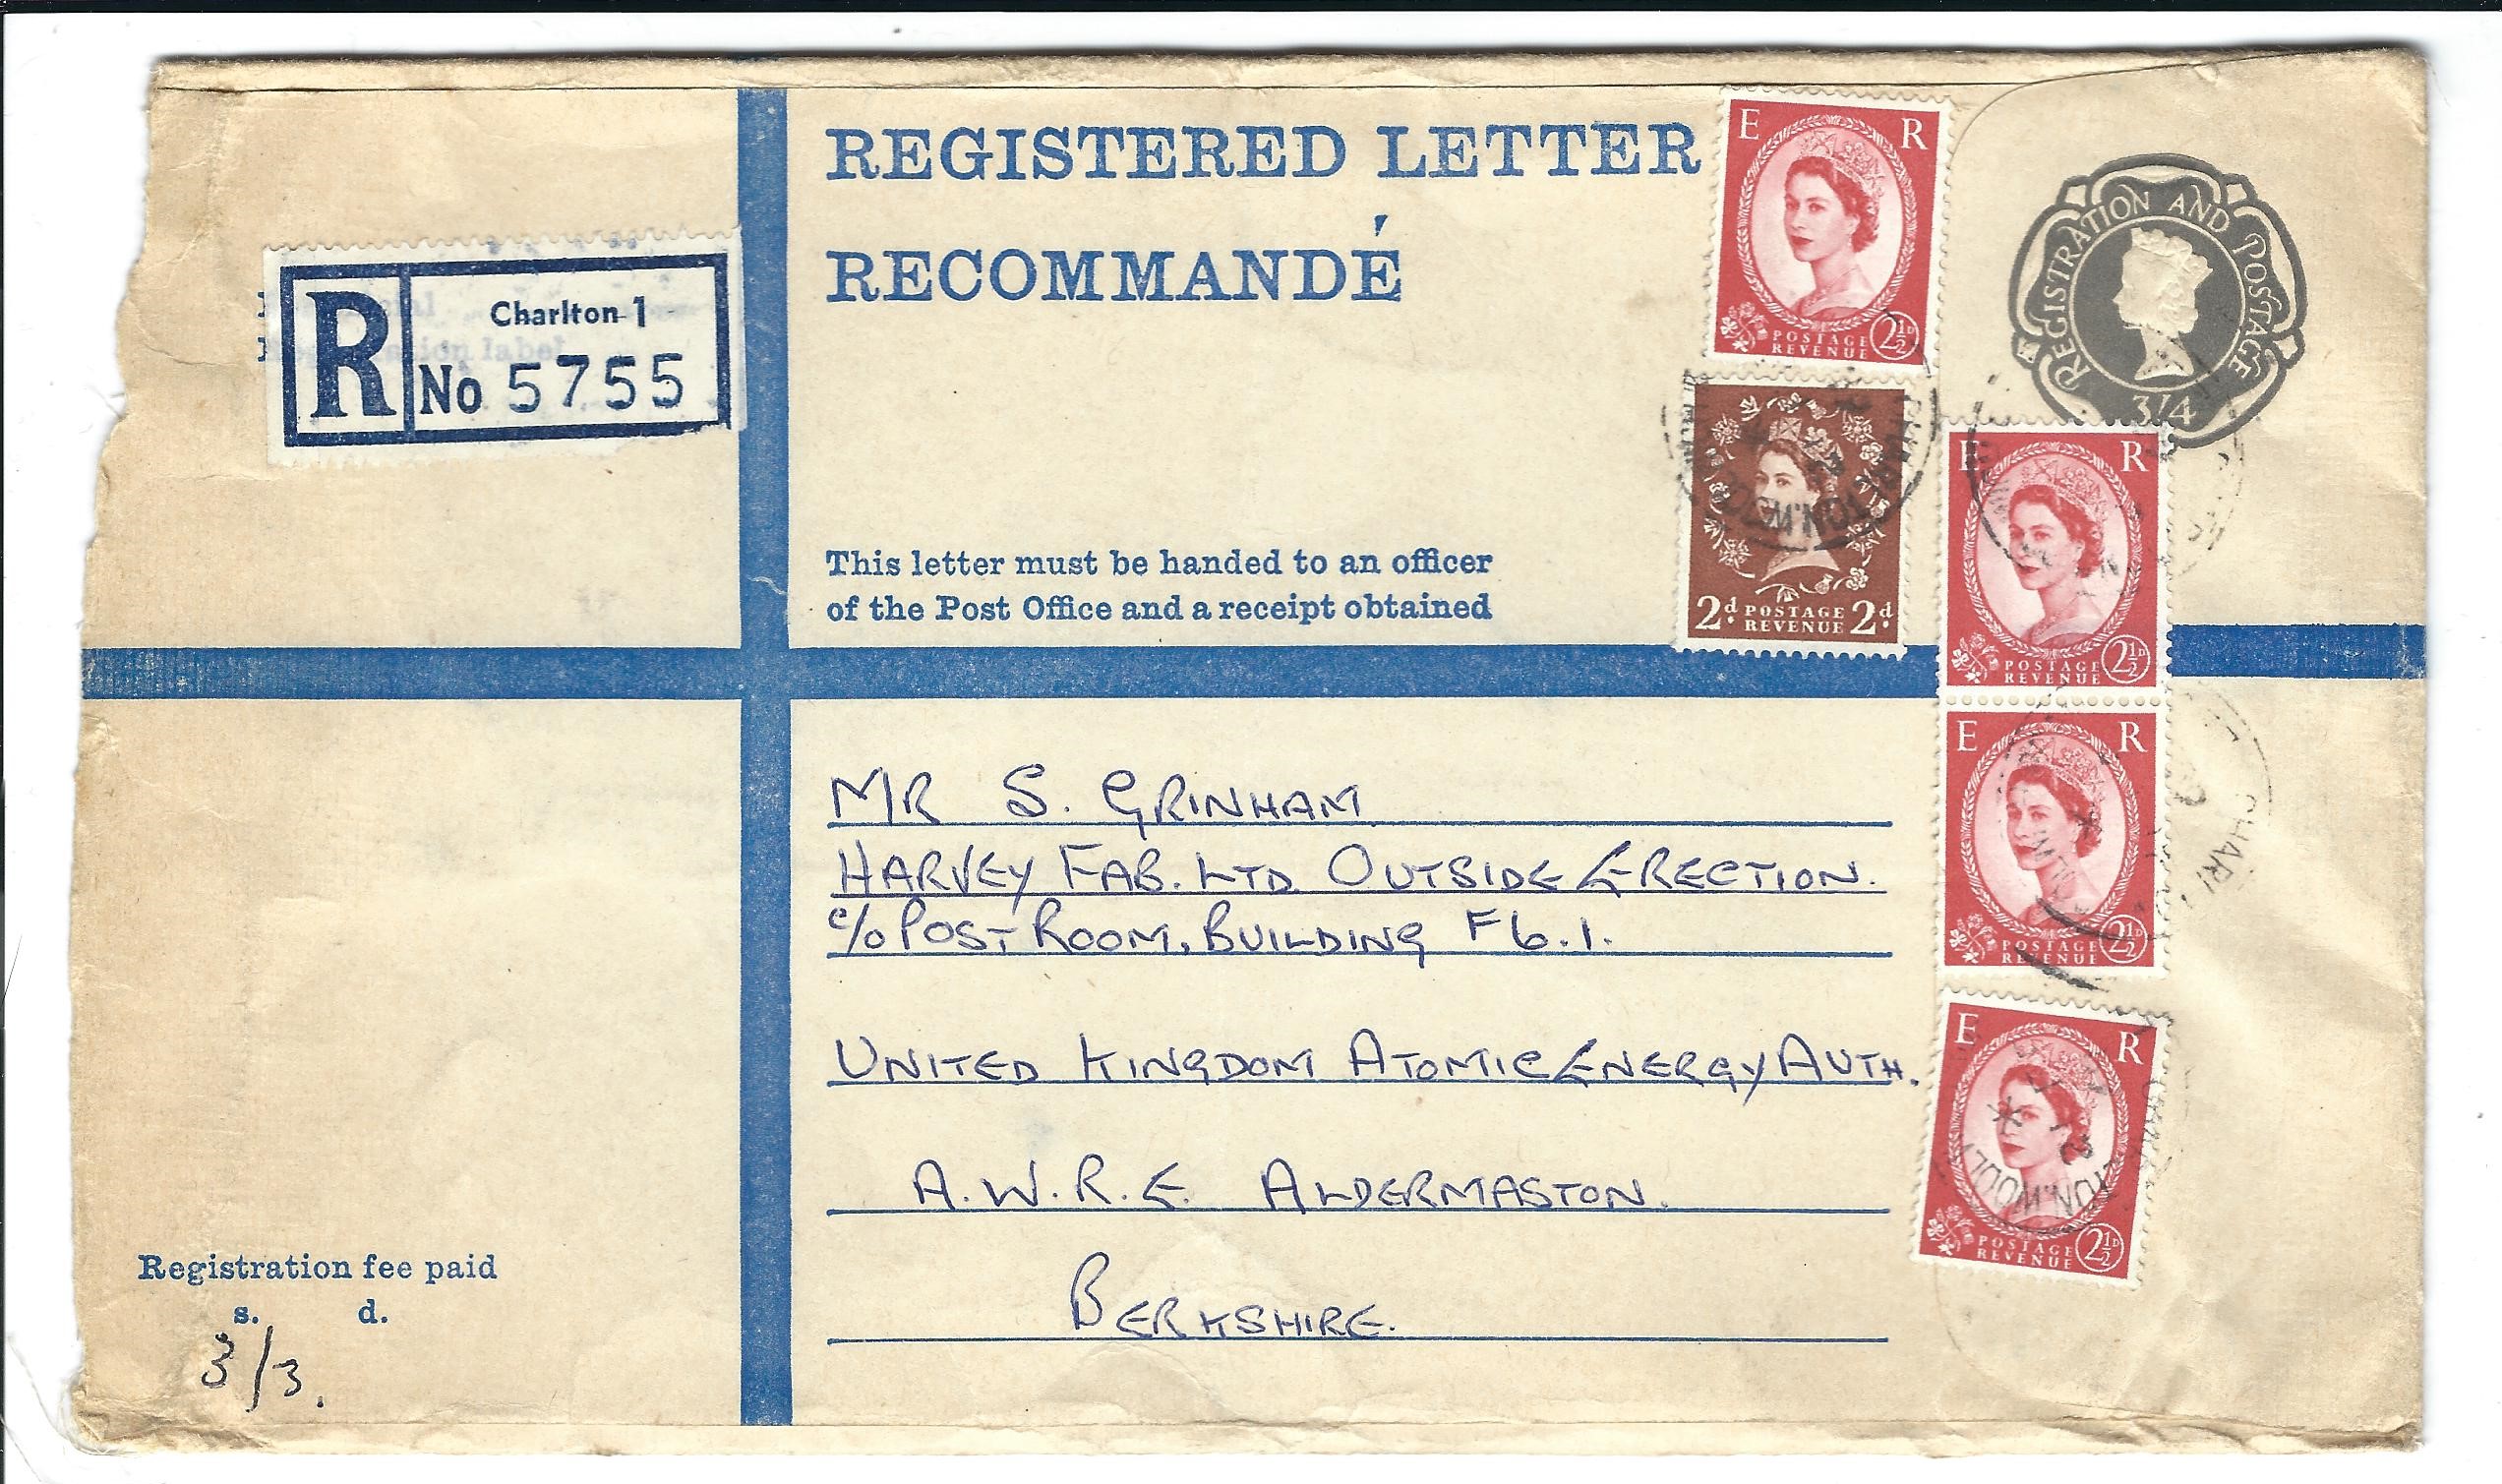 REGISTERED LETTER
RECOMMANDÉ
R
Charlton 1
No 5755
ion label
This letter must be handed to an officer
of the Post Office and a receipt obtained
E R
POSTAGE
REVENUE
2½D
2d. POSTAGE 2d.
REVENUE
CHARLTON.WOOL
REGISTRATION AND POSTAGE
3/4
E R
POSTAGE
REVENUE
2½D
E R
POSTAGE
REVENUE
2½D
E R
POSTAGE
REVENUE
2½D
MR S. GRINHAM
HARVEY FAB. LTD OUTSIDE ERECTION.
c/o POST ROOM, BUILDING F6.1.
UNITED KINGDOM ATOMIC ENERGY AUTH.
A.W.R.E. ALDERMASTON.
BERKSHIRE.
Registration fee paid
s. d.
3/3.